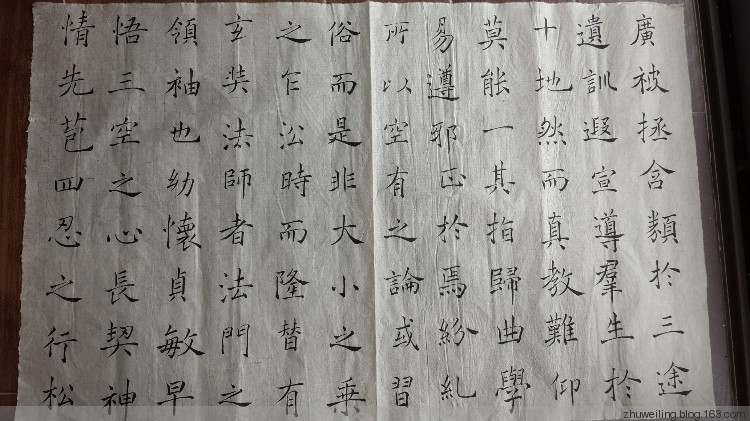 廣被拯含類於三途
遺訓遐宣導羣生於
十地然而真教難仰
莫能一其指歸曲學
易遵邪正於焉紛糺
所以空有之論或習
俗而是非大小之乗
之乍沿時而隆替有
玄奘法師者法門之
領袖也幼懷貞敏早
悟三空之心長契神
情先苞四忍之行松
zhuweiling.blog.163.com